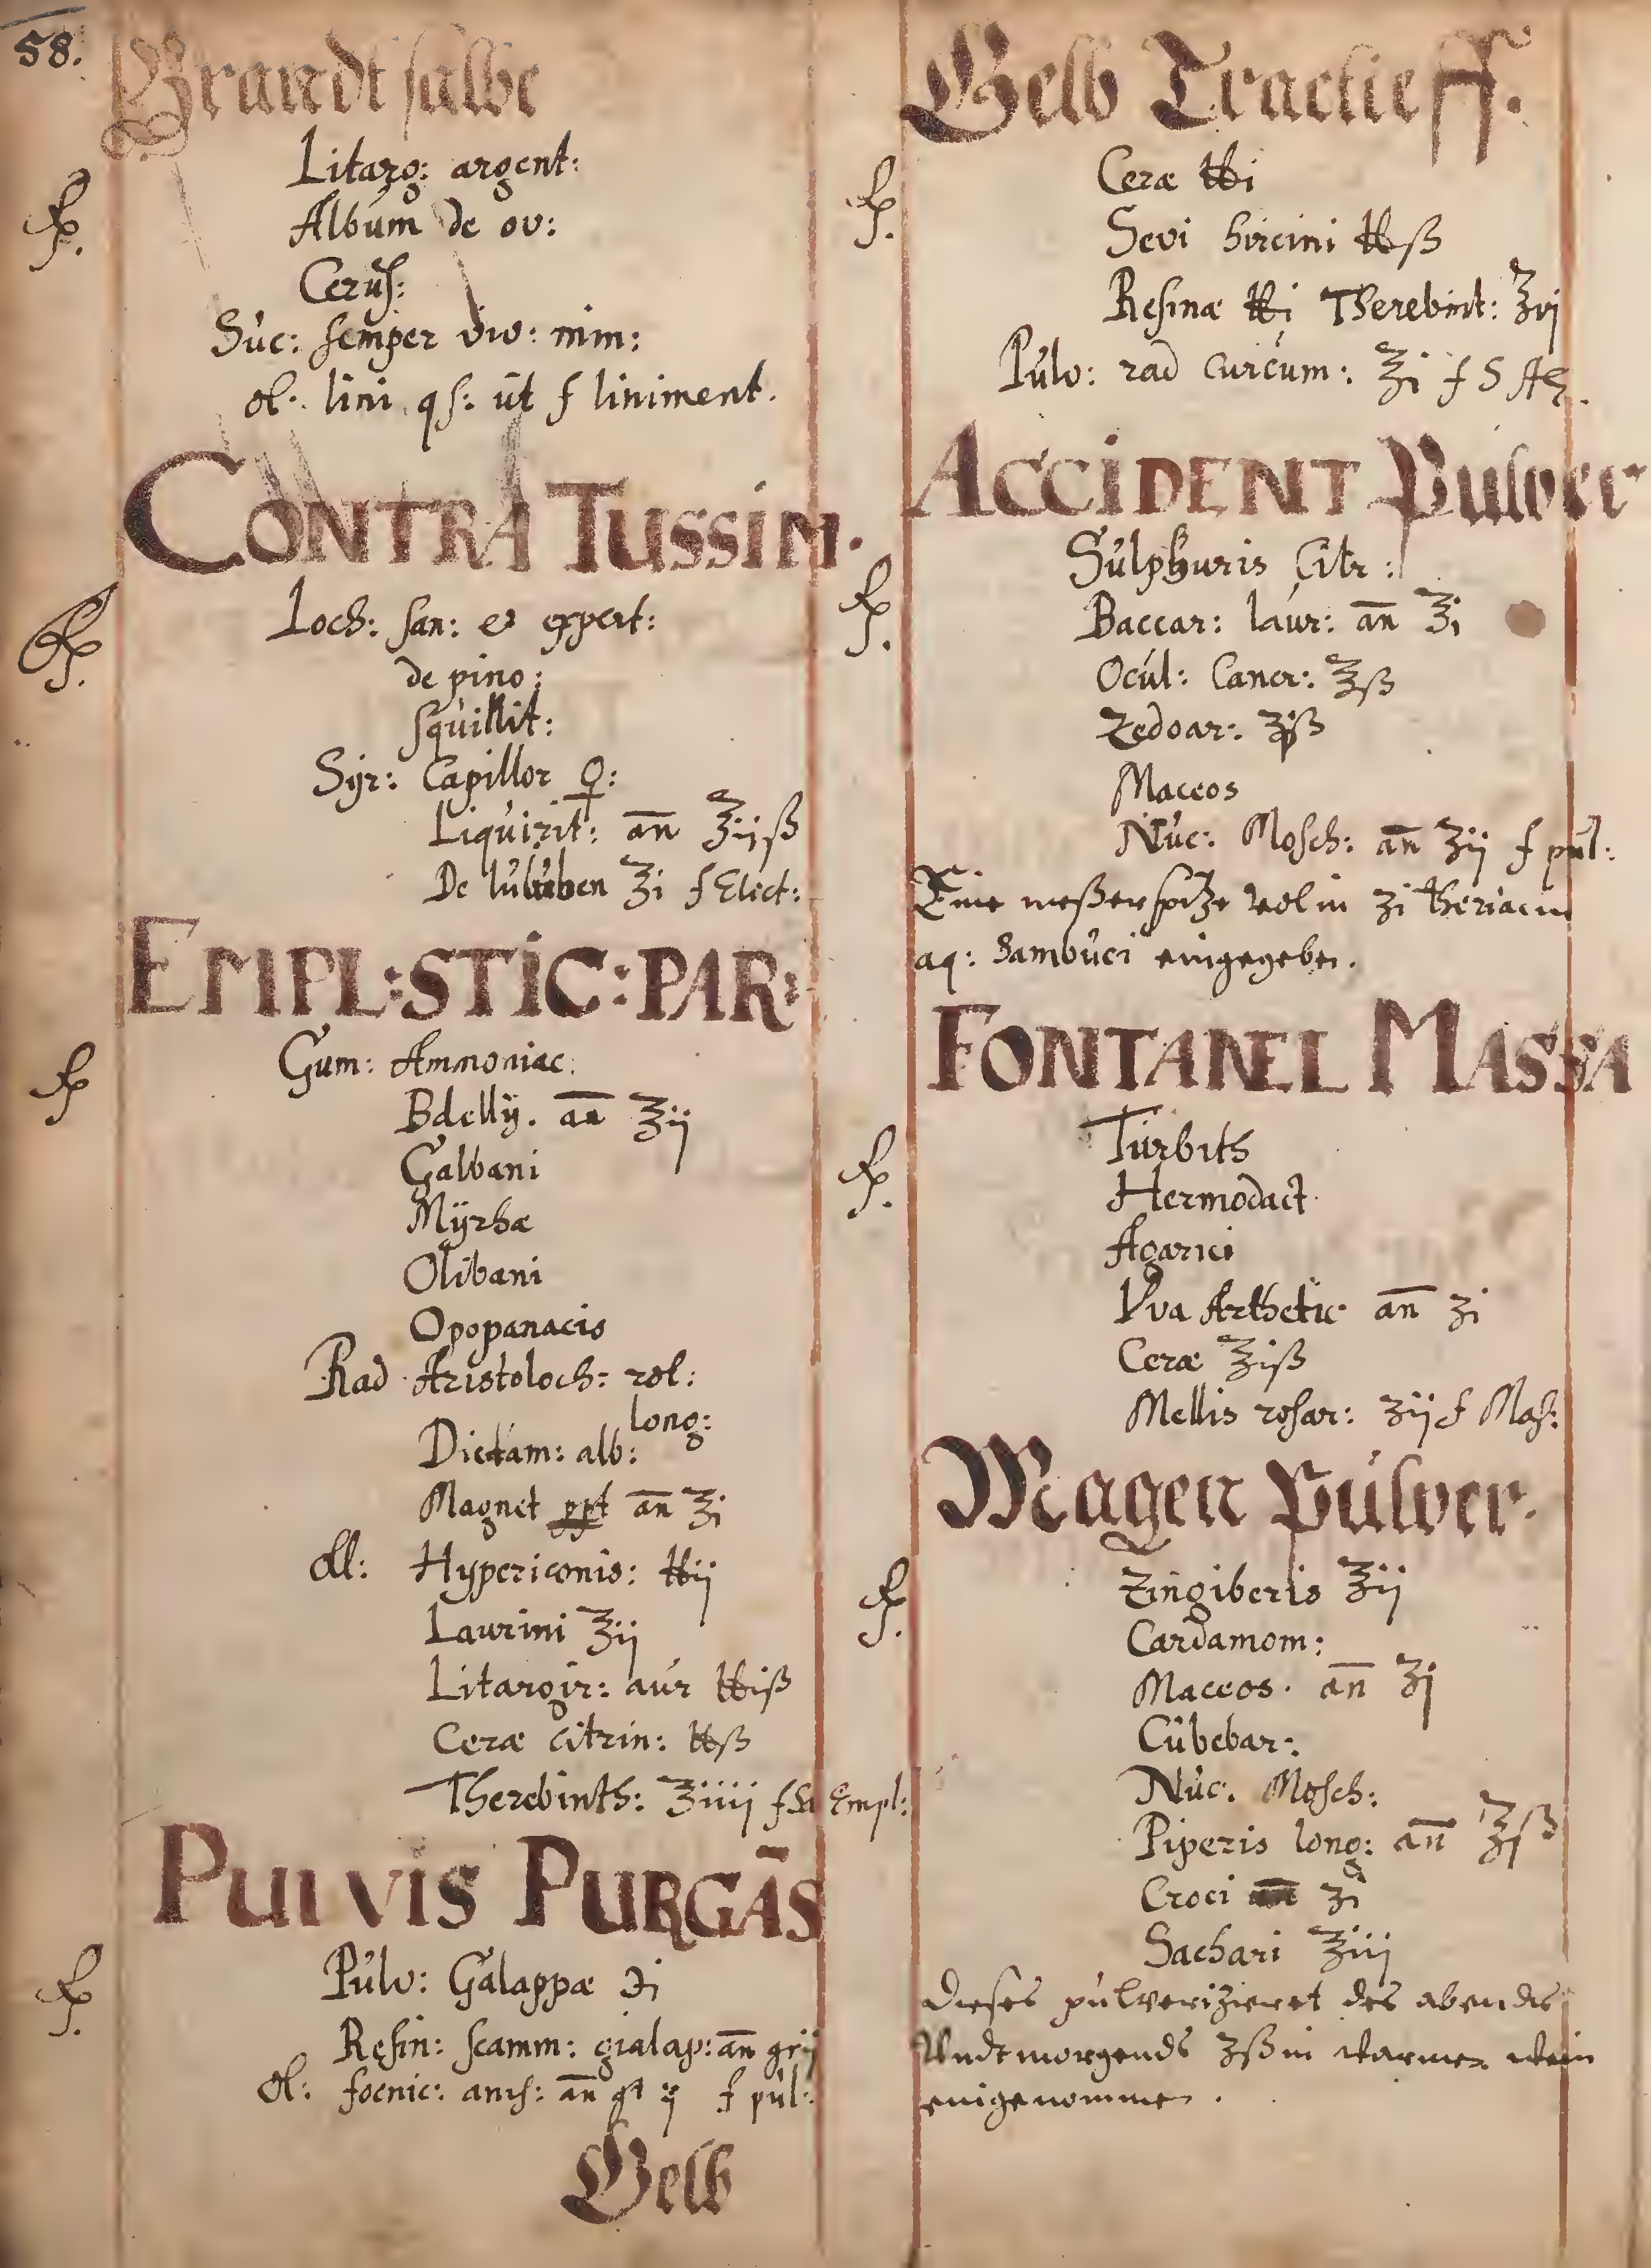 58.
Brandt salbe
℞. Litarg: argent:
Album de ov:
Ceruß:
Suc: semper viv: nim:
ol: lini qs: ut f liniment.
CONTRA TUSSIM.
℞. Loch: san: et expert:
de pino:
squillit:
Syr: Capillor ♀:
Liquirit: an̄ ℥ijß
De Iujuben ℥i f Elect:
EMPL:STIC:PAR:
℞ Gum: Ammoniac:
Bdellÿ. an̄ ℥ij
Galbani
Mÿrhæ
Olibani
Opopanacis
Rad Aristoloch: rot:
long:
Dictam: alb:
Magnet ppt an̄ ℥i
Oll: Hypericonis: ℔ij
Laurini ℥ij
Litargir: aur ℔iß
Ceræ citrin: ℔ß
Therebinth: ℥iiij f Empl:
PULVIS PURGĀS
℞. Pulv: Galappæ ℈i
Resin: scamm: gialap: an̄ grij
Ol: foenic: anis: an̄ gt ij f pul:
Gelb
Gelb Tractieff.
℞. Ceræ ℔i
Sevi hircini ℔ß
Resinæ ℔i Therebint: ℥vj
Pulv: rad curcum: ℥i f S A
ACCIDENT Pulver
℞. Sulphuris Citr:
Baccar: laur: an̄ ℥i
Ocul: Cancr: ℥ß
Zedoar: ʒiß
Maceos
Nuc: Mosch: an̄ ʒij f pul:
Eine meßerspitze vol in ʒi theriac in
aq: Sambuci eingegeben.
FONTANEL MASSA
℞. Turbith
Hermodact.
Agarici
Yva Arthetic an̄ ʒi
Ceræ ℥iß
Mellis rosar: ʒij f Mas:
Magen Pulver.
℞. Zingiberis ℥ij
Cardamom:
Maceos. an̄ ℥j
Cubebar:
Nuc: Mosch:
Piperis long: an̄ ℥ß
Croci ʒi
Sachari ℥iij
Dieses pulverizieret des abends
Undt morgends ʒß in warmen wein
eingenommen.